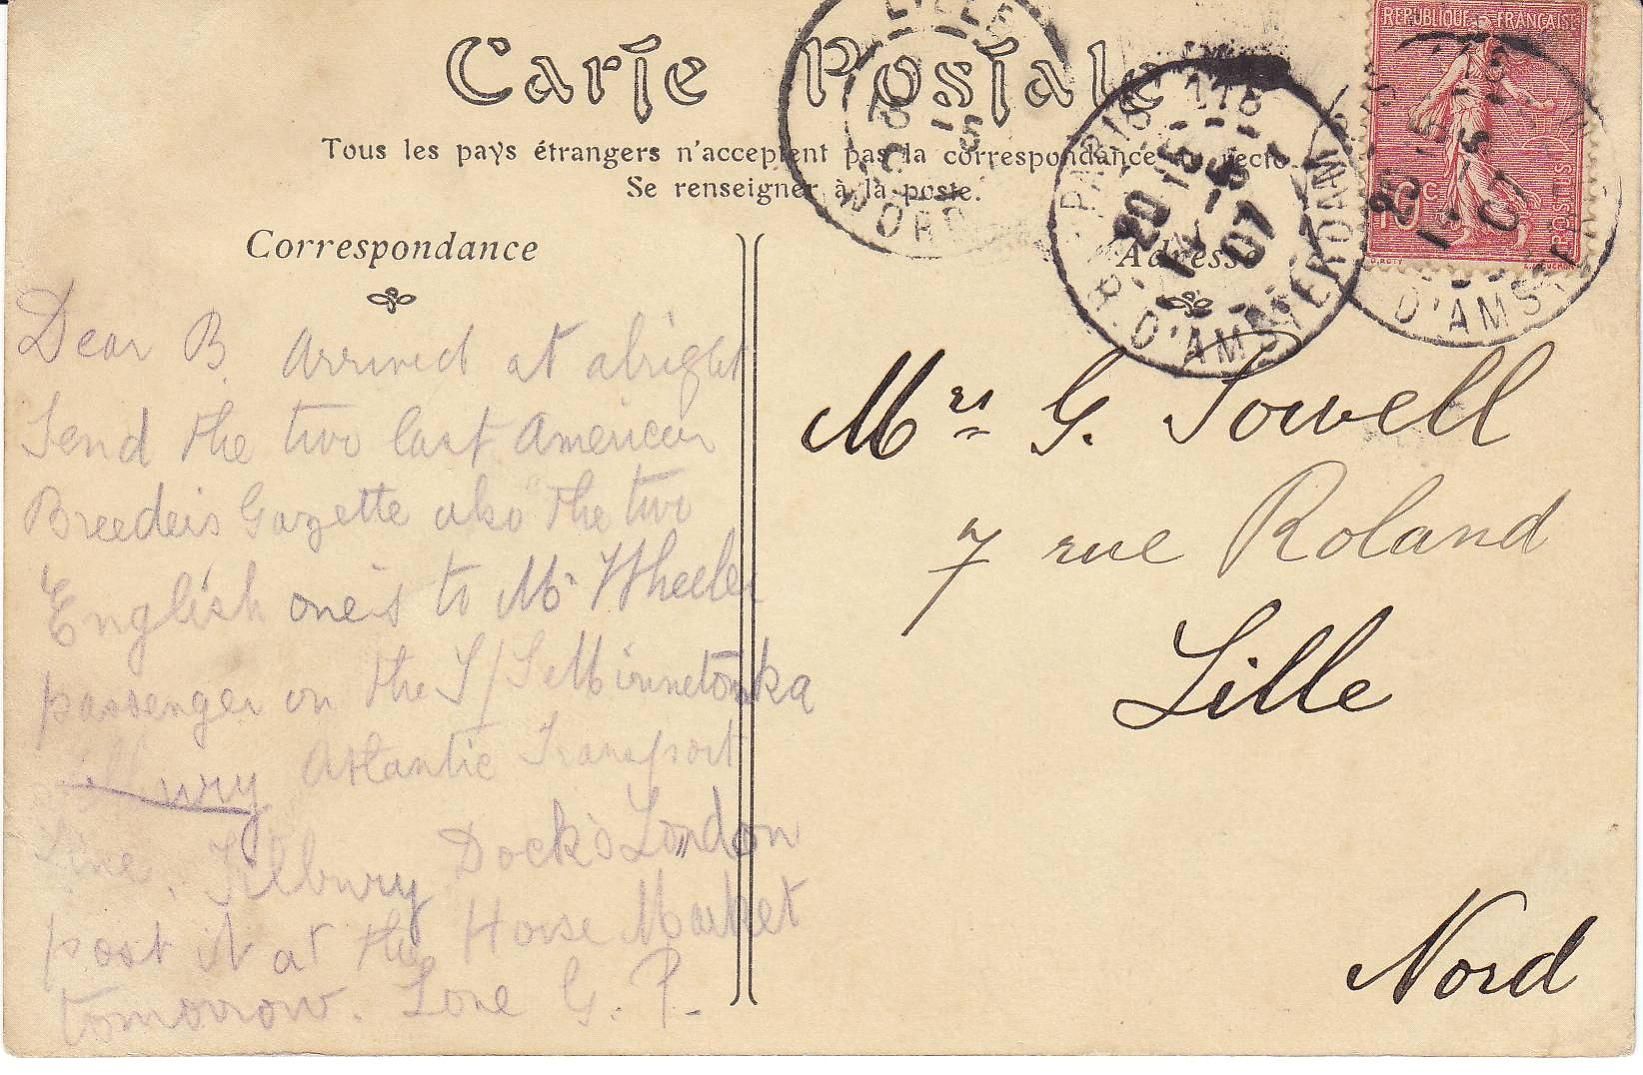 Carte Postale
Tous les pays étrangers n'acceptent pas la correspondance au recto.
Se renseigner à la poste.
Correspondance
Dear B. Arrived at alright
Send the two last American
Breeders Gazette also the two
English one's to Mr Wheeler
passenger on the S/S Minnetonka
Atlantic Transport
Line, Tilbury Dock's London
post it at the Horse Market
tomorrow. Love G. P.
Adresse
Mrs G. Sowell
7 rue Roland
Lille
Nord
LILLE
NORD
PARIS
20 15
07
R. D'AMSTERDAM
RÉPUBLIQUE FRANÇAISE
10c
POSTES
O. ROTY
25 15
07
D'AMS